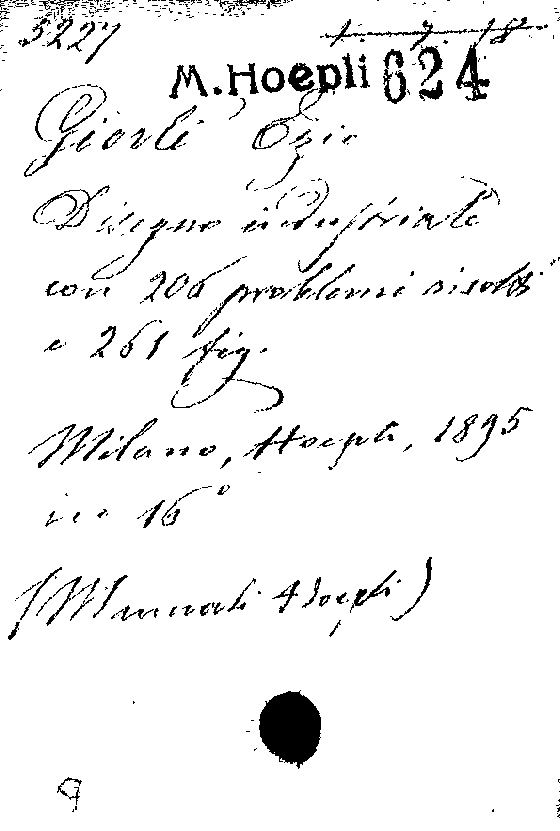 5227 1. 7. 18
M.Hoepli 624
Giorli Ezio
Disegno industriale
con 206 problemi risolti
e 261 fig.
Milano, Hoepli, 1895
in 16°
(Manuali Hoepli)